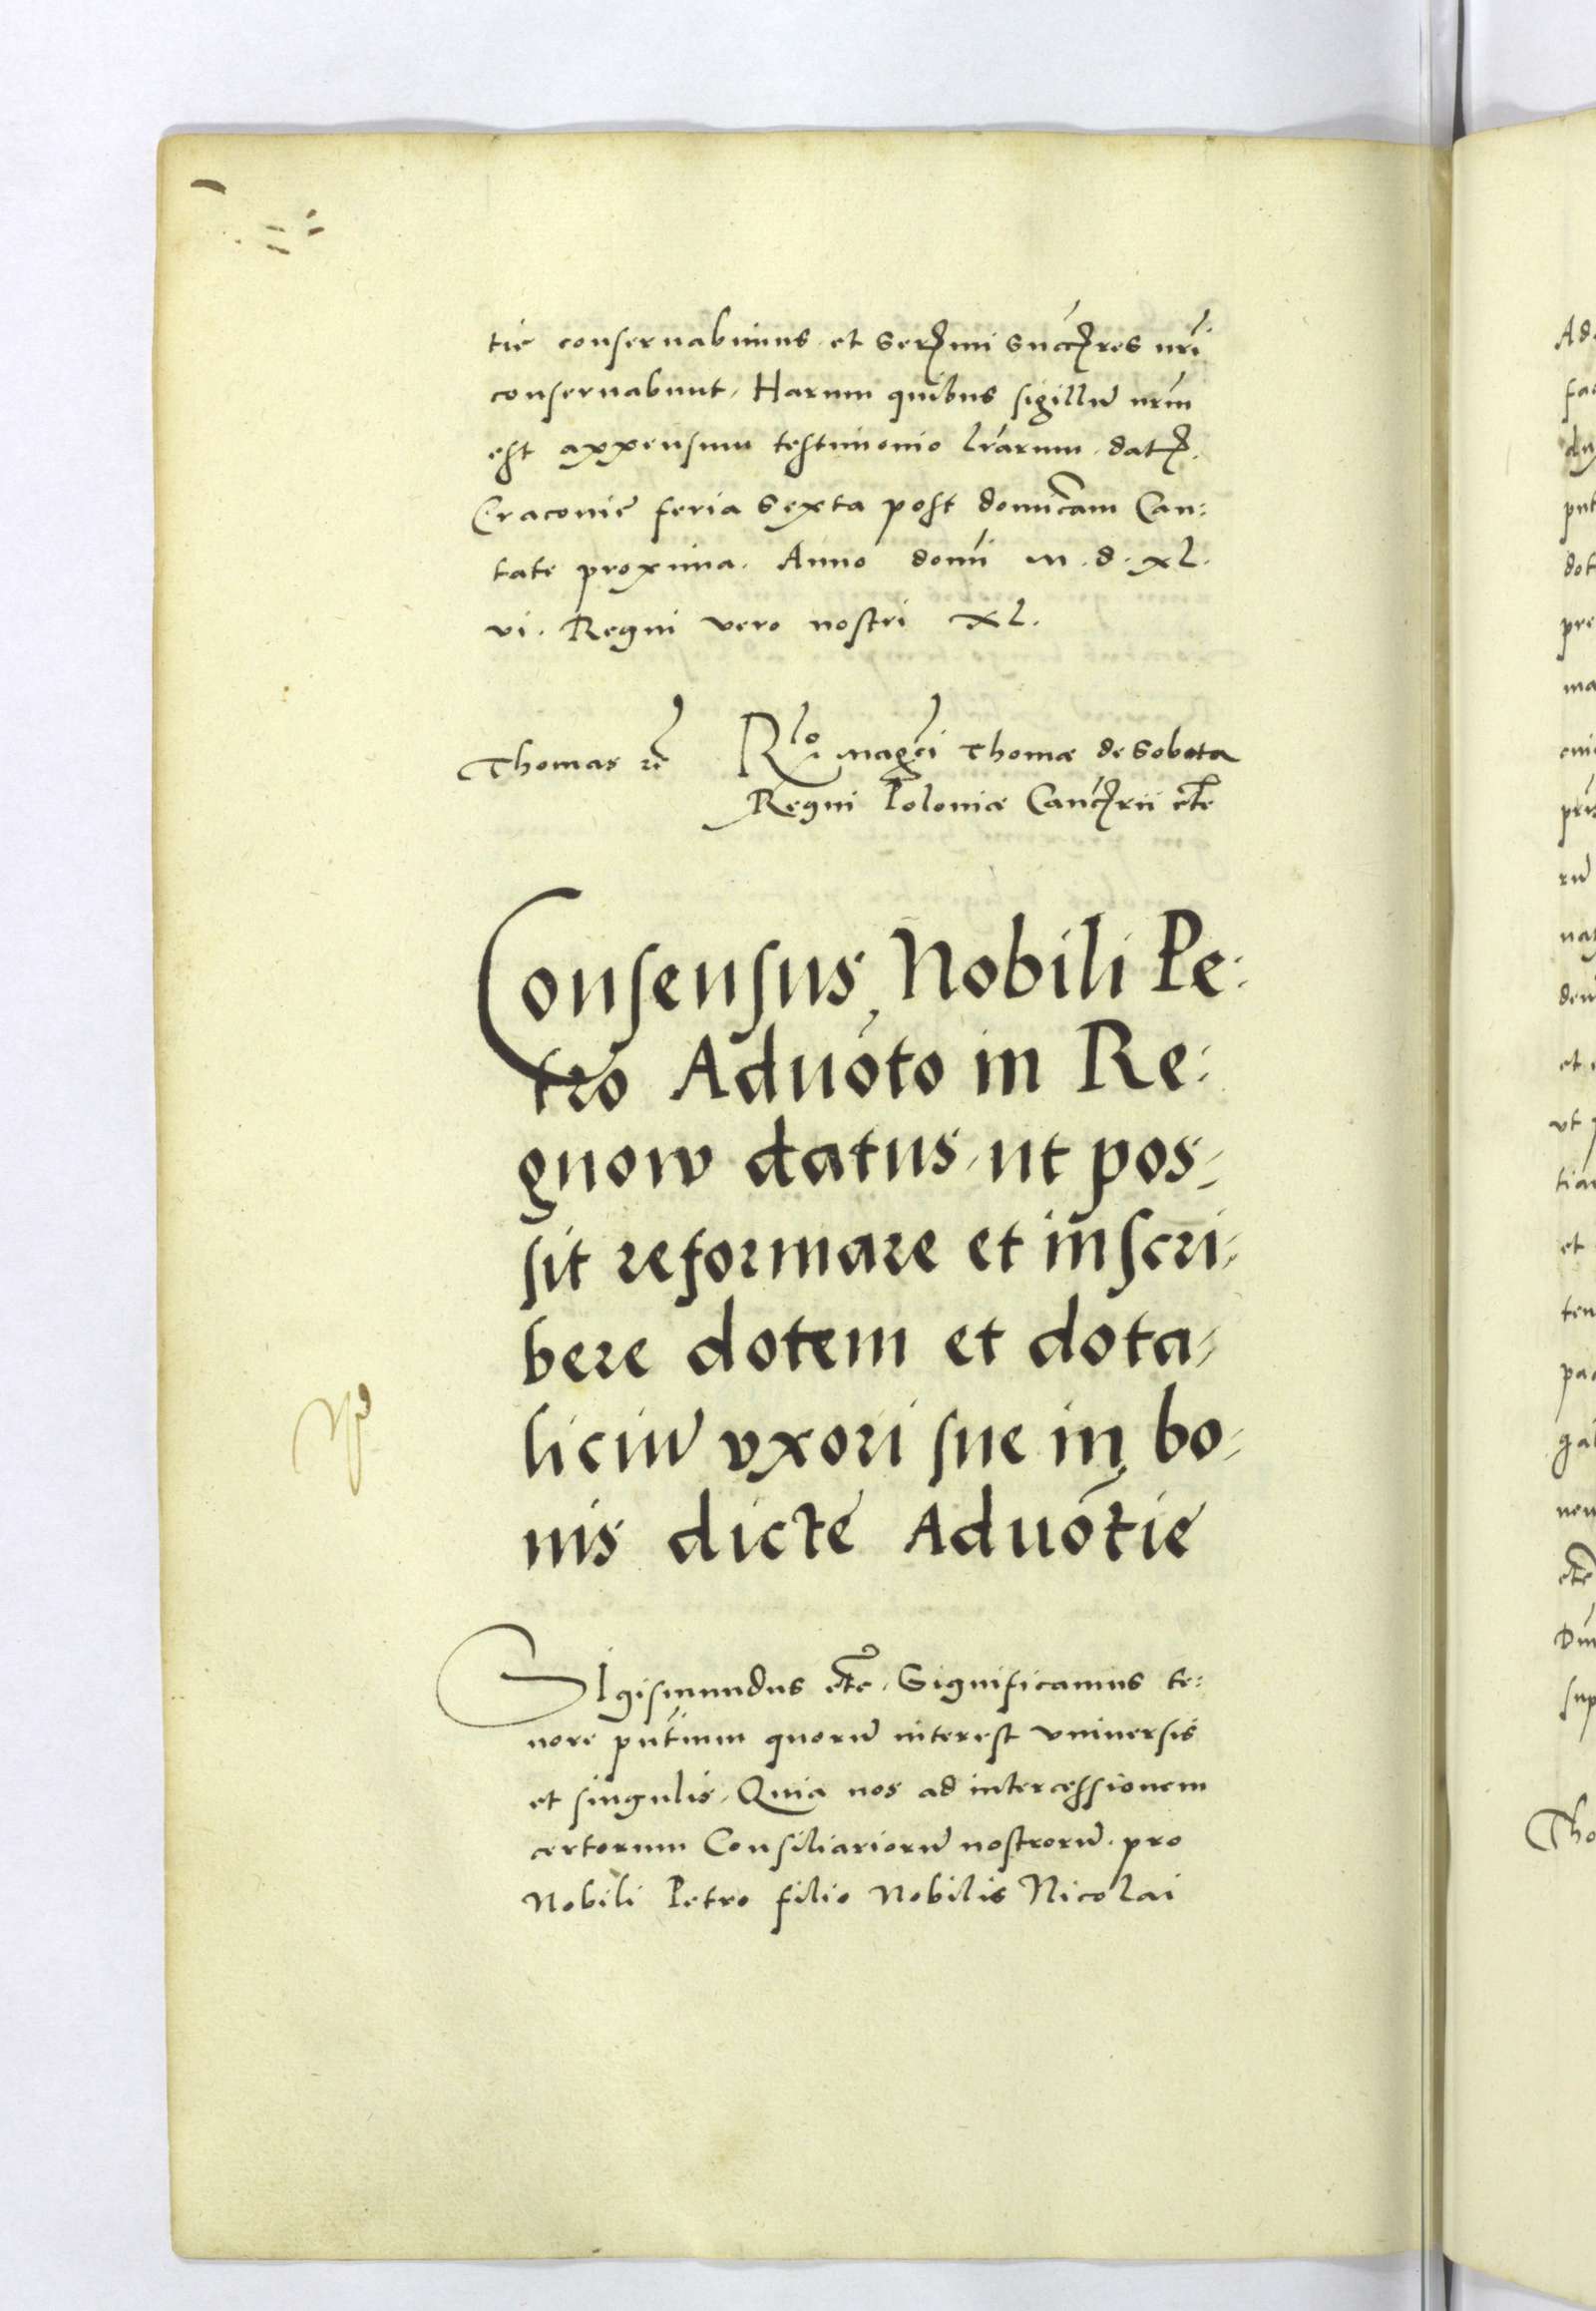 tie conservabimus et Serꝫmi Succꝫres nr̄i
conservabunt, Harum quibus sigillū nr̄m
est appensum testimonio lr̄arum. datꝫ.
Cracovie feria Sexta post domīcam Can:
tate proxima. Anno domī M. d. xl.
vi. Regni vero nostri XL.
Thomas rē
Rlo magcī Thomæ de Sobota
Regni Poloniæ Cancꝫrii etc̄
Consensus, Nobili Pe:
tro Advōto in Re:
gnow datus, ut pos:
sit reformare et inscri:
bere dotem et dota:
liciū uxori sue in bo:
nis dicte Advōtie
SIgismundus etc̄. Significamus te:
nore pn̄tium quorū interest universis
et singulis, Quia nos ad intercessionem
certorum Consiliariorū nostrorū. pro
Nobili Petro filio Nobilis Nicolai